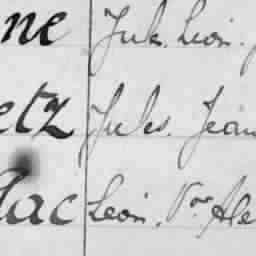 ne Jules. Léon.
etz Jules. Jean
lac Léon. Vor Ale